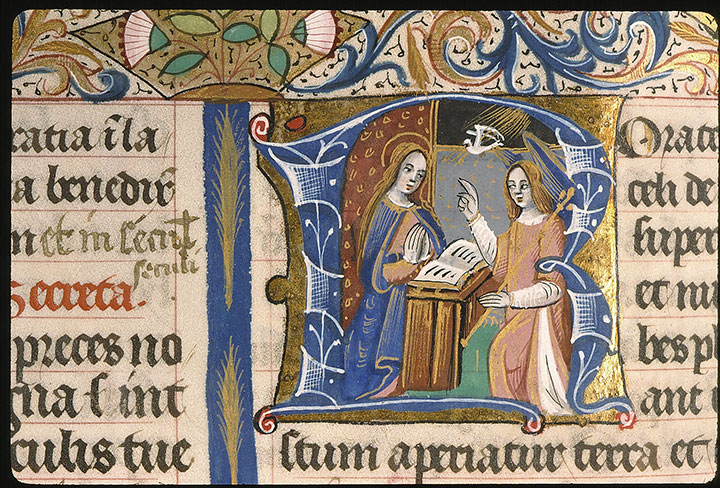 ratia i la
a benedir
n et in secul
seculi
Secreta.
preces no
gna s int
culis tue
R
Orate
celi de
super
et nu
bes pl
ant i
stum aperiatur terra et